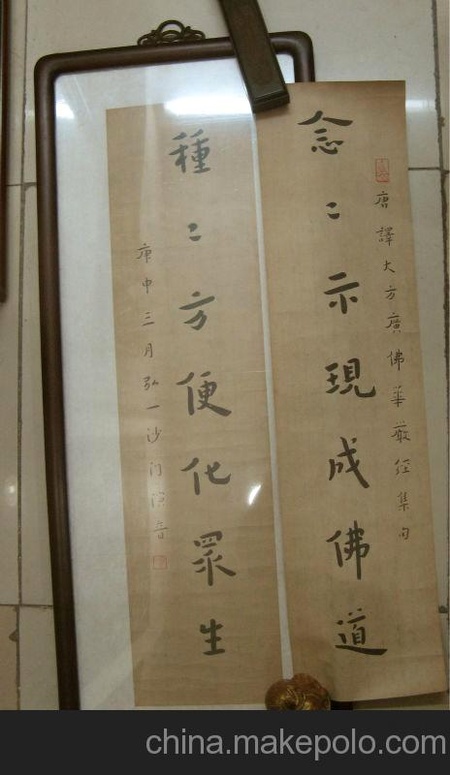 唐譯大方廣佛華嚴經集句
念〻示現成佛道
種〻方便化眾生
庚申三月弘一沙门演音
china.makepolo.com